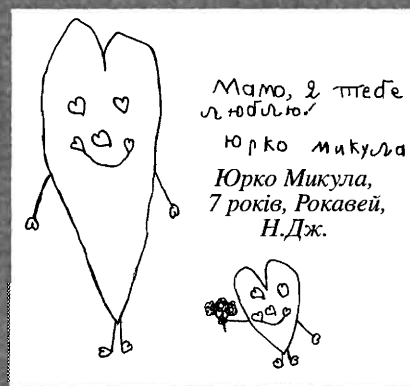 Мамо, я тебе
люблю!
Юрко микула
Юрко Микула,
7 років, Рокавей,
Н.Дж.